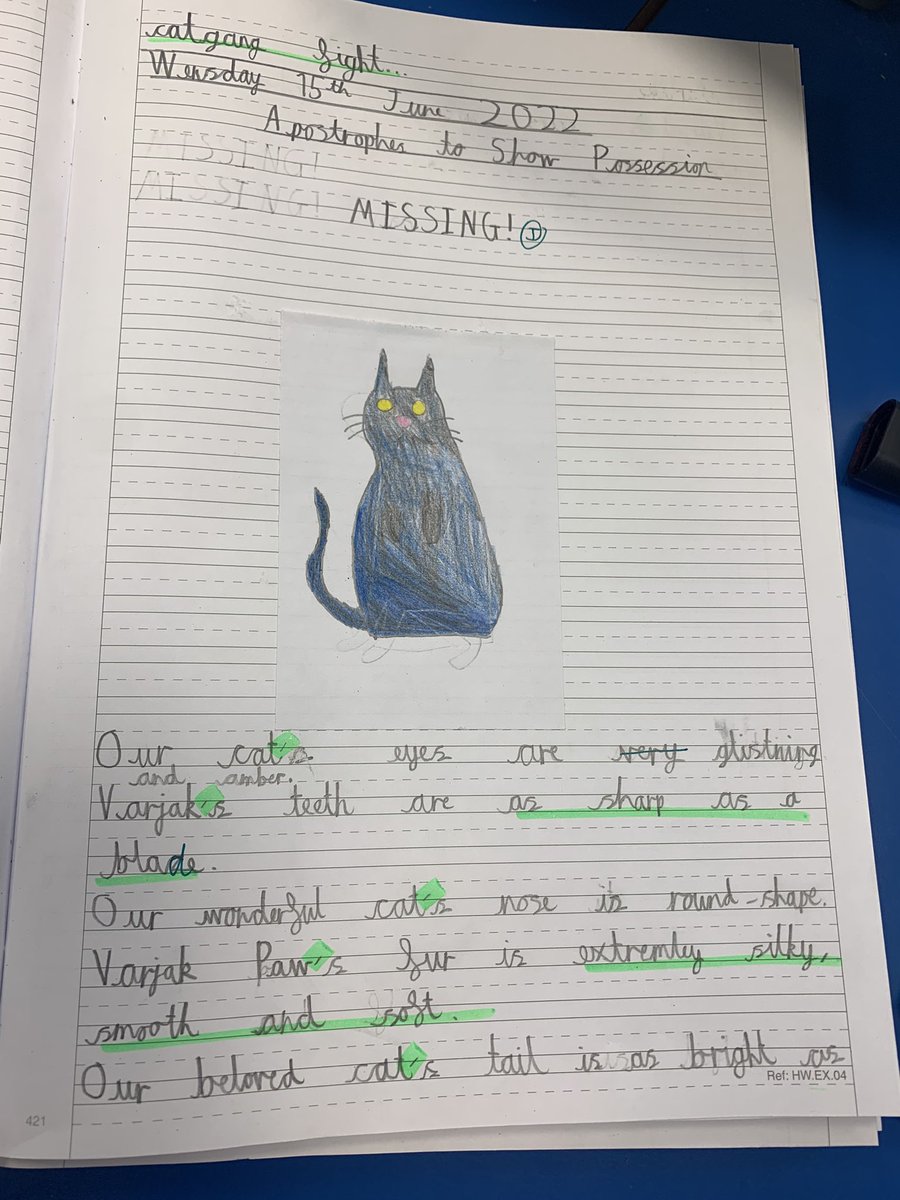 catgang fight...
Wensday 15th June 2022
Apostrophes to Show Possession
MISSING!
MISSING!
MISSING! I
Our cat's eyes are very glistning
and amber.
Varjak's teeth are as sharp as a
blade.
Our wonderful cat's nose is round-shape.
Varjak Paw's fur is extremly silky,
smooth and soft.
Our beloved cat's tail is as bright as
Ref: HW.EX.04
421